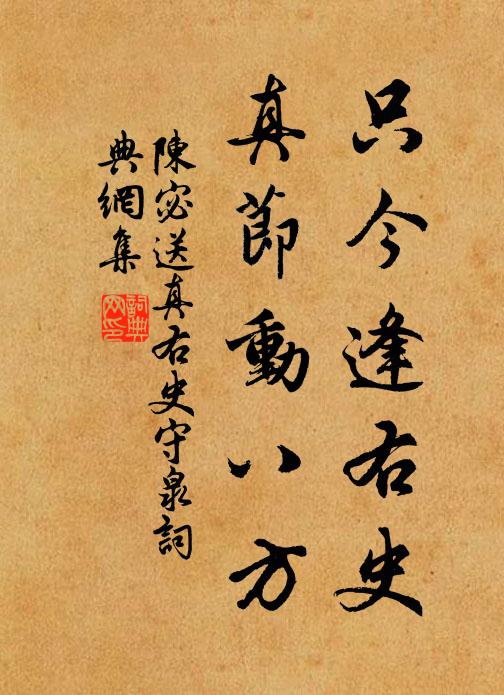 只今逢右史
真節動八方
陳宓送真右史守泉詞
典網集
詞典網印